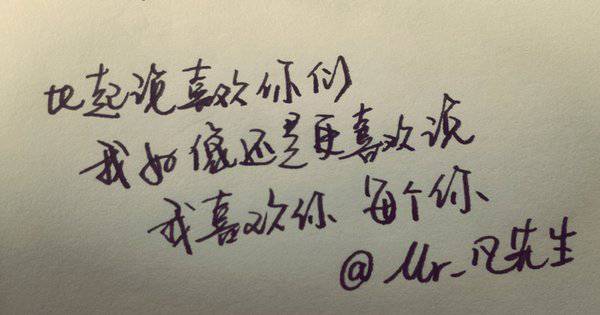 比起说喜欢你们
我好像还是更喜欢说
我喜欢你 每个你
@Mr_凡先生